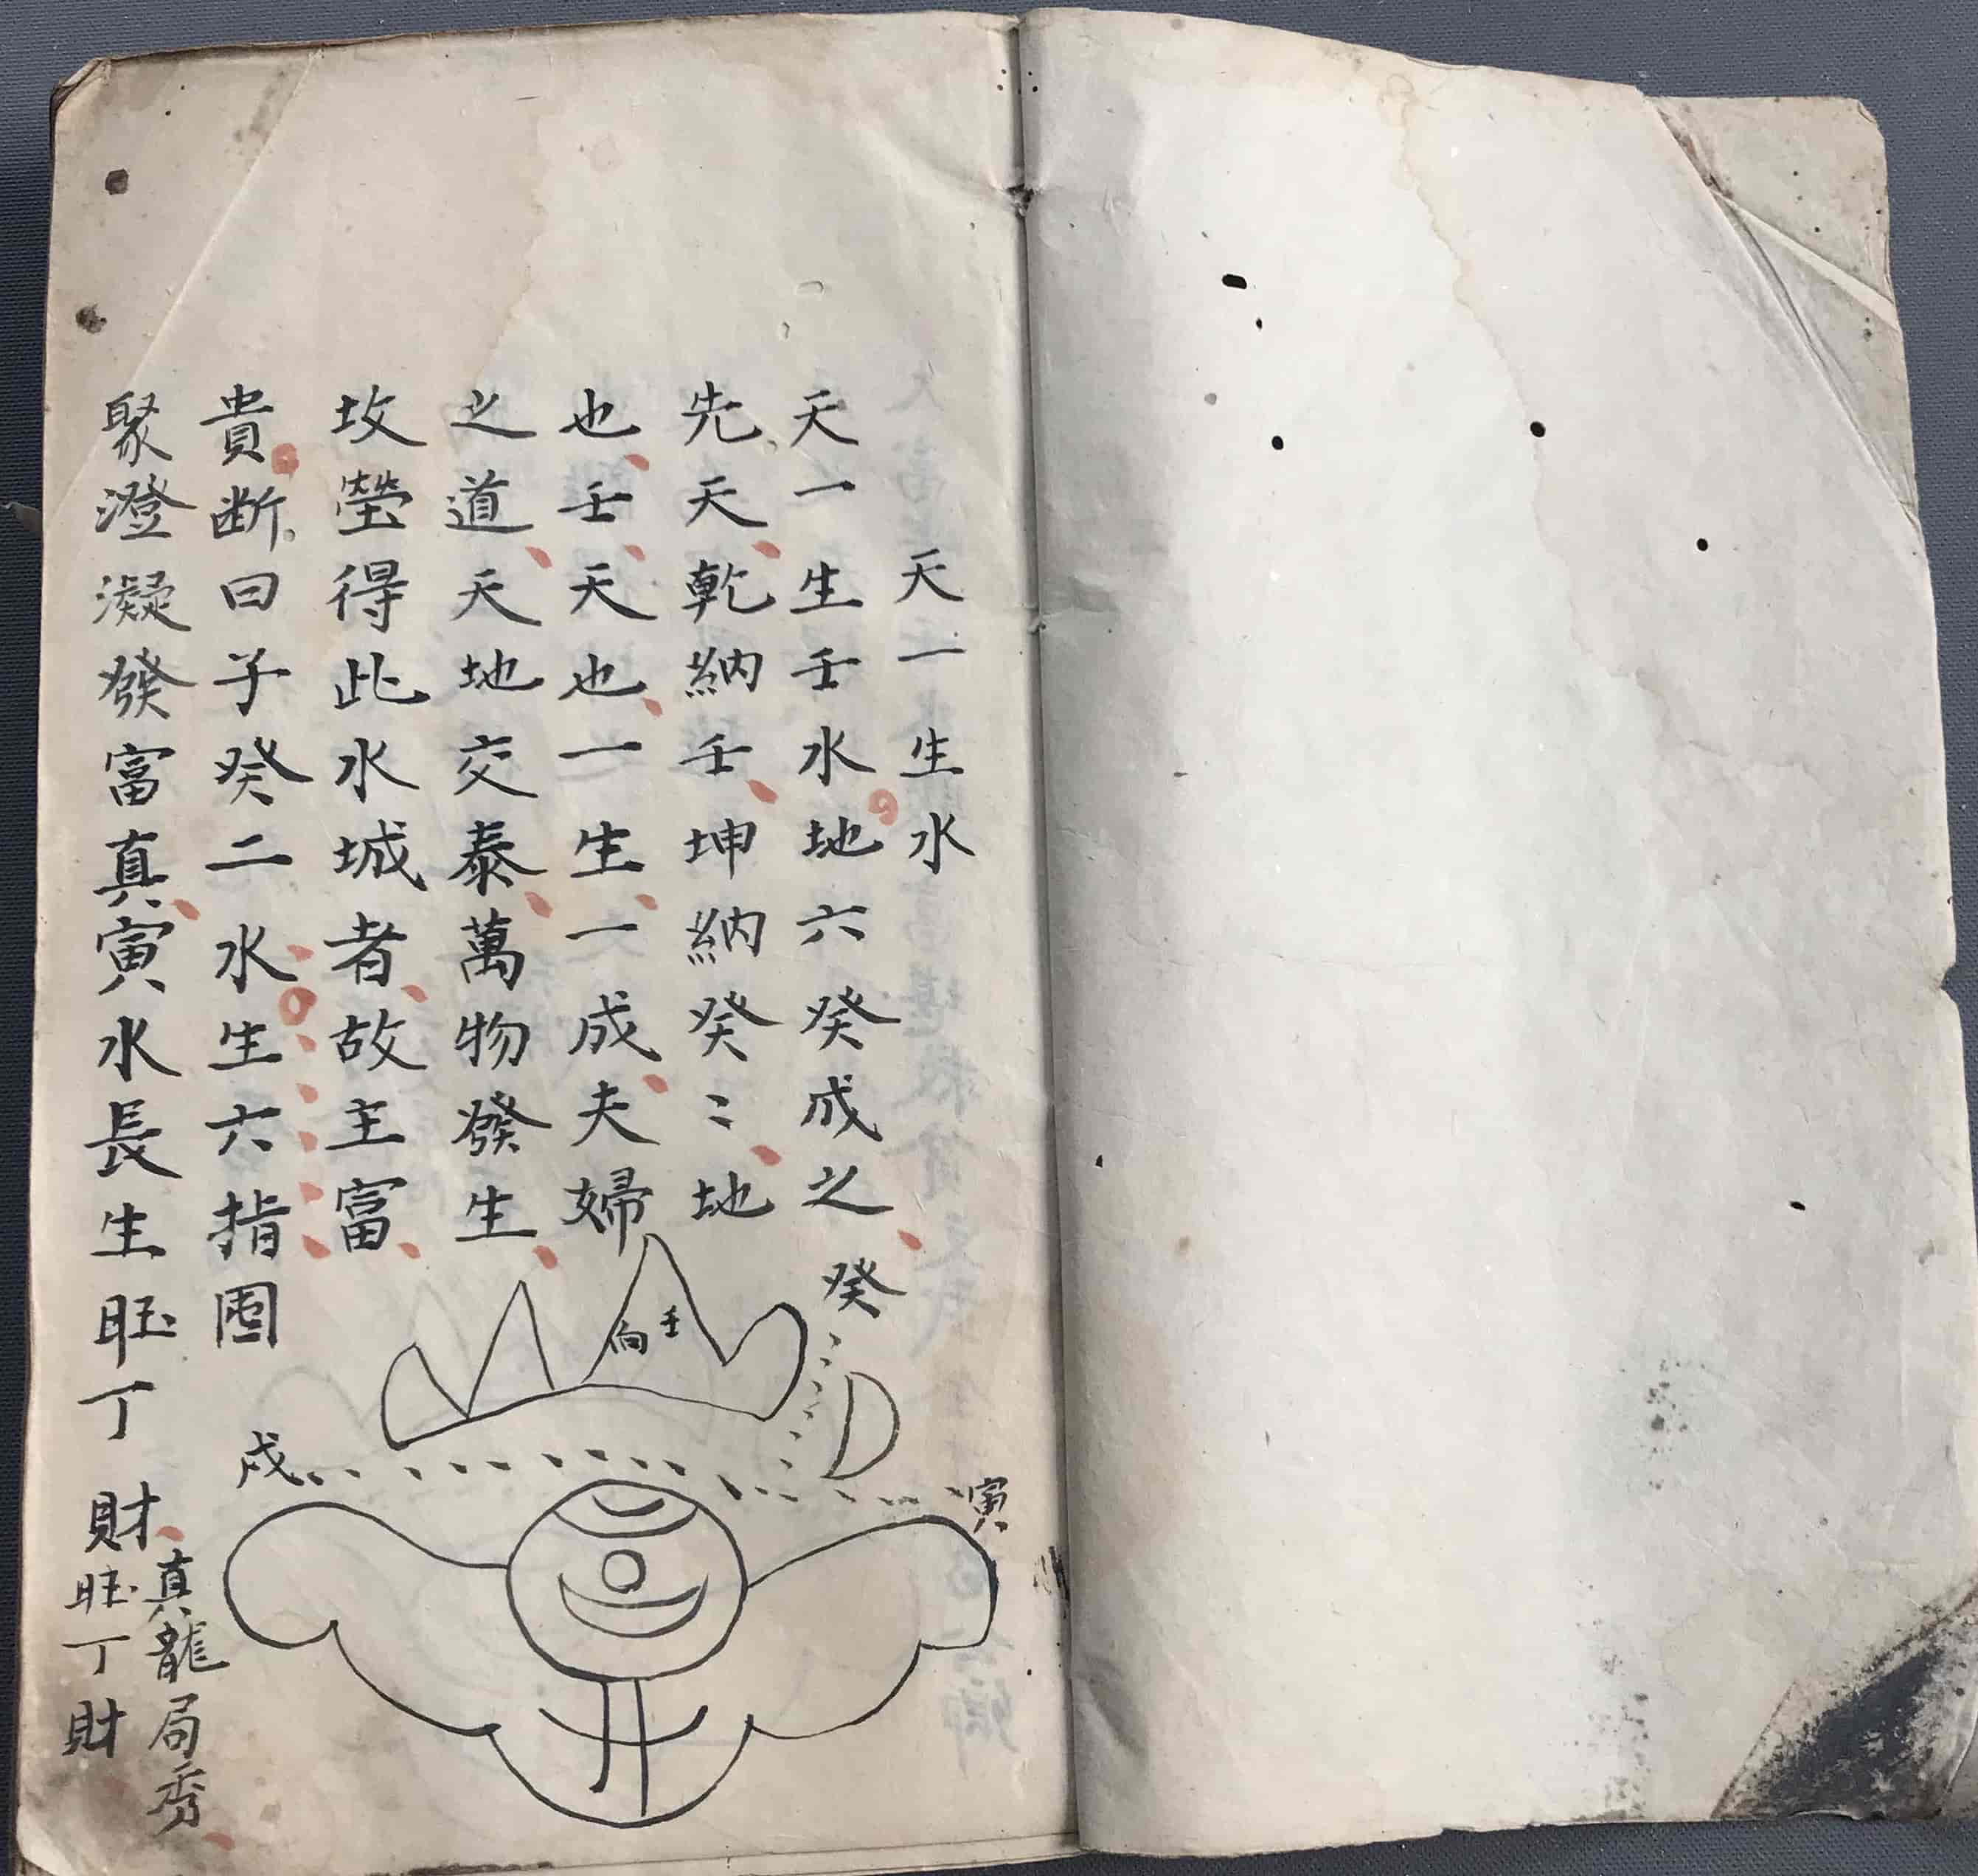 天一生水
天一生壬水地六癸成之
先天乾納壬坤納癸〻地
也壬天也一生一成夫婦
之道天地交泰萬物發生
坟塋得此水城者故主富
貴断曰子癸二水生六指圍
聚澄凝發富真寅水長生旺丁財
真龍局秀
旺丁財
癸
壬
向
戍
寅